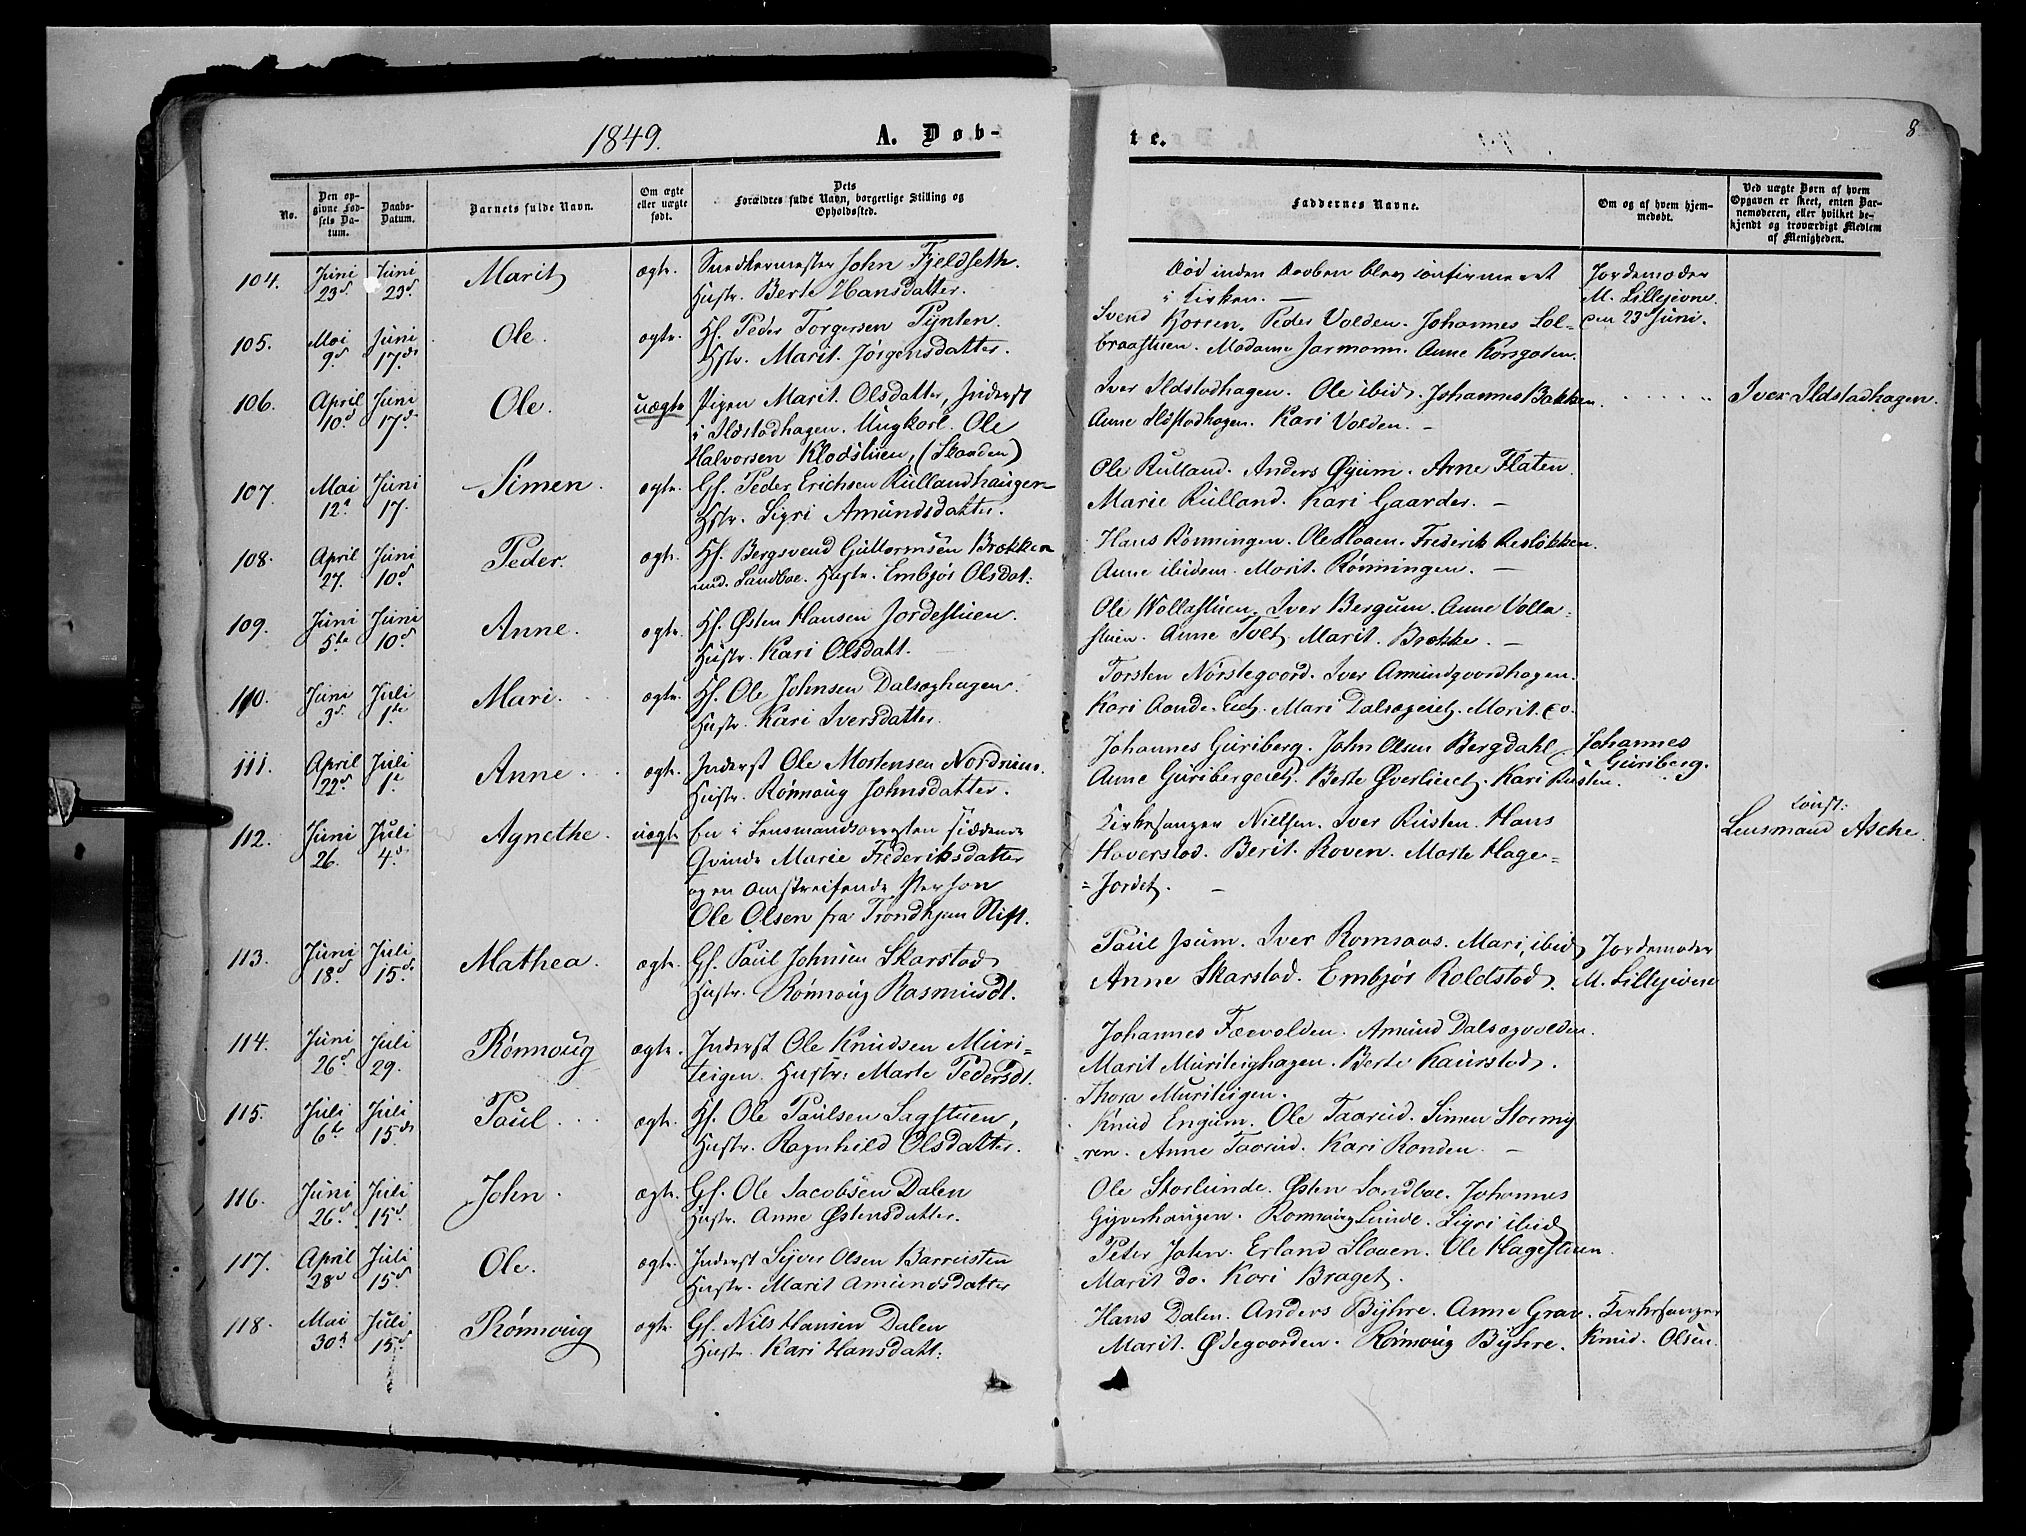 1849.
A. Døb-
te.
8
No.
Den op-
givne Fød-
sels Da-
tum.
Daabs-
Datum.
Barnets fulde Navn.
Om ægte
eller uægte
født.
Dets
Forældres fulde Navn, borgerlige Stilling og
Opholdssted.
Faddernes Navne.
Om og af hvem hjem-
medøbt.
Ved uægte Børn af hvem
Opgaven er skeet, enten Bar-
nemoderen, eller hvilket be-
kjendt og troværdigt Medlem
af Menigheden.
104. Juni 23d. Juni 23d. Marit ægte. Snedkermester John Fjeldseth.
Hustr. Berte Hansdatter.
Død inden Daaben blev confirmeret
i Kirken. —
Jordemoder
M. Lillejevne
den 23d Juni.
105. Mai 9d. Juni 17de Ole. ægte. Hf. Peder Torgersen Pynten.
Hstr. Marit Jørgensdatter.
Svend Korsen. Peder Volden. Johannes Sol-
braastuen. Madame Jarmann. Anne Korsgaden.
106. April 10d Juni 17d. Ole. uægte Pigen Marit Olsdatter, Inderst
i Ildstadhagen. Ungkarl Ole
Halvorsen Klodstuen, (Skanden)
Iver Ildstadhagen. Ole ibid. Johannes Bakken.
Anne Ildstadhagen. Kari Volden. —
Iver Ildstadhagen.
107. Mai 12d Juni 17. Simen. ægte. Gf. Peder Erichsen Rullandhaugen
Hstr. Sigri Amundsdatter.
Ole Rulland. Anders Øyum. Arne Flaten.
Marie Rulland. Kari Gaarder. —
108. April 27. Juni 10d. Peder. ægte. Hf. Bergsvend Guttormsen Brækken
und. Sandboe. Hustr. Embjør Olsdat:
Hans Rønningen. Ole Moaen. Frederik Resløkken.
Anne ibidem. Marit Rønningen. —
109. Juni 5te Juni 10d. Anne. ægte. Hf. Østen Hansen Jordestuen.
Hustr. Kari Olsdatt.
Ole Wollastuen. Iver Bergum. Anne Volla-
stuen. Anne Tolt. Marit Brække. —
110. Juni 3d. Juli 1te Mari. ægte. Hf. Ole Johnsen Dalseghagen.
Hustr. Kari Iversdatter.
Torsten Nørstegaard. Iver Amundgaardhagen.
Kari Aande Eie. Mari Dalsegeiet. Marit do.
111. April 22d Juli 1te Anne. ægte. Inderst Ole Mortensen Nordrum.
Hustr. Rønnoug Johnsdatter.
Johannes Guriberg. John Olsen Bergdahl.
Anne Guribergeiet. Berte Øverlieiet. Kari Rusten.
Johannes
Guriberg.
112. Juni 26. Juli 4de Agnethe. uægte. En i Lensmandsarresten siddende
Qvinde Marie Frederiksdatter
og en omstreifende Person
Ole Olsen fra Trondhjem Stift.
Kirkesanger Nielsen. Iver Rusten. Hans
Haverstad. Berit Roven. Marte Hage-
=Jordet. —
Const:
Lensmand Asche.
113. Juni 18d Juli 15de Mathea. ægte. Gf. Paul Johnsen Skarstad
Hustr. Rønnoug Rasmusdt.
Paul Isum. Iver Romsaas. Mari ibid
Anne Skarstad. Embjør Roldstad.
Jordemoder
M. Lillejevne
114. Juni 26d. Juli 29. Rønnoug ægte. Inderst Ole Knudsen Muri=
teigen. Hustr. Marte Pedersdt.
Johannes Færvolden. Amund Dalsegvolden.
Marit Muriteighagen. Berte Kaurstad.
Thora Muriteigen.
115. Juli 6te Juli 15de Paul ægte. Hf. Ole Paulsen Sagstuen,
Hustr. Ragnhild Olsdatter.
Knud Engum. Ole Taarud. Simen Stormy
=ren. Anne Taarud. Kari Randen. —
116. Juni 26d. Juli 15d. John. ægte. Gf. Ole Jacobsen Dalen
Hustr. Anne Østensdatter.
Ole Storlunde. Østen Sandboe. Johannes
Gyverhaugen. Rønnoug Lunde. Sigri ibid
117. April 28d Juli 15d. Ole. ægte. Inderst Syver Olsen Barrusten
Hustr. Marit Amundsdatter
Peter John. Erland Sloaen. Ole Hagestuen.
Marit do. Kari Braget.
118. Mai 30d Juli 15d. Rønnoug ægte. Gf. Nils Hansen Dalen
Hustr. Kari Hansdatt.
Hans Dalen. Anders Byhre. Anne Grav.
Marit Ødegaarden. Rønnoug Byhre.
Kirkesanger
Knud Olsen.